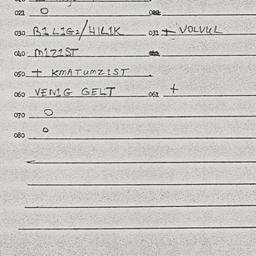 021 O 022
030 B1L1G2/H1L1K 031 + VOLVUL
040 M1Z1ST
050 + KMATUMZ1ST
060 VEN1G GELT 061 +
070 O
080 O